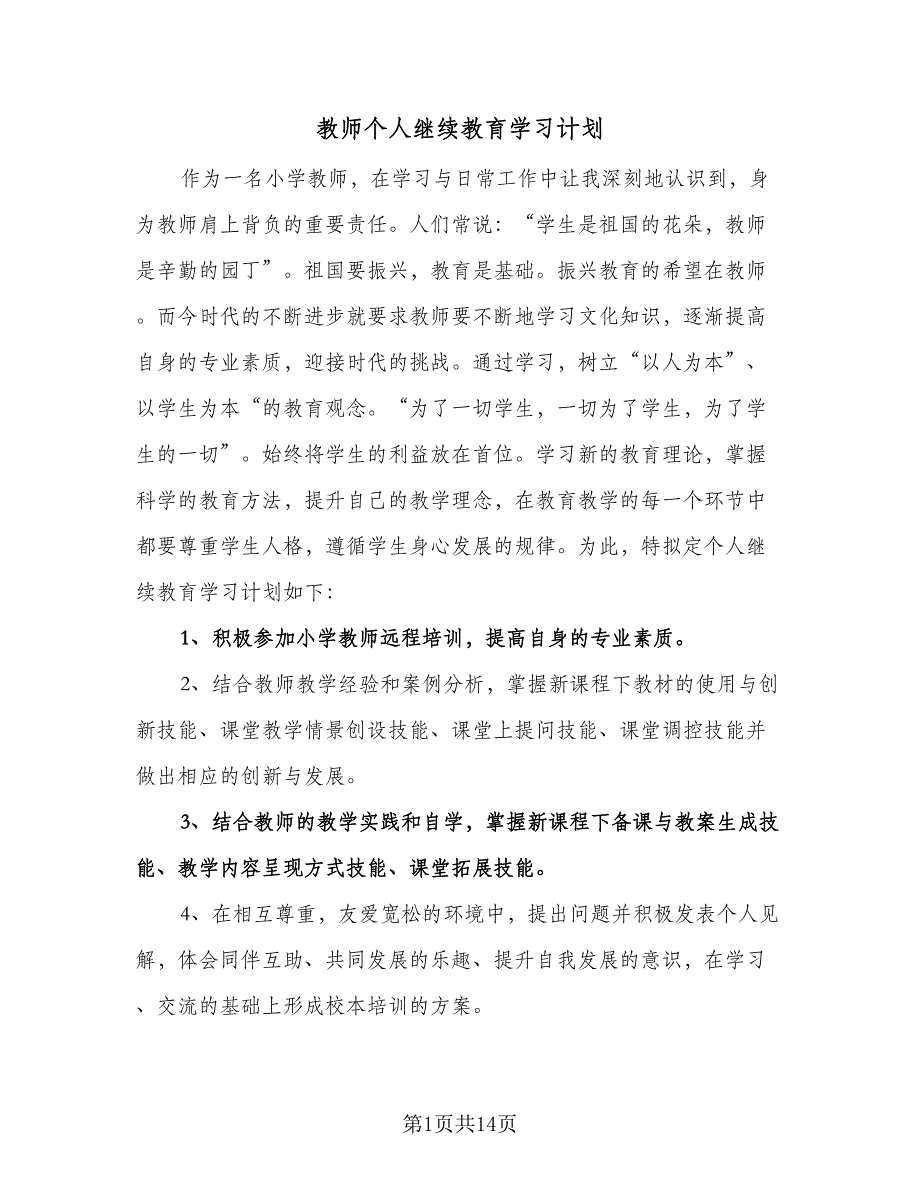 教师个人继续教育学习计划
作为一名小学教师，在学习与日常工作中让我深刻地认识到，身
为教师肩上背负的重要责任。人们常说：“学生是祖国的花朵，教师
是辛勤的园丁”。祖国要振兴，教育是基础。振兴教育的希望在教师
。而今时代的不断进步就要求教师要不断地学习文化知识，逐渐提高
自身的专业素质，迎接时代的挑战。通过学习，树立“以人为本”、
以学生为本“的教育观念。“为了一切学生，一切为了学生，为了学
生的一切”。始终将学生的利益放在首位。学习新的教育理论，掌握
科学的教育方法，提升自己的教学理念，在教育教学的每一个环节中
都要尊重学生人格，遵循学生身心发展的规律。为此，特拟定个人继
续教育学习计划如下：
1、积极参加小学教师远程培训，提高自身的专业素质。
2、结合教师教学经验和案例分析，掌握新课程下教材的使用与创
新技能、课堂教学情景创设技能、课堂上提问技能、课堂调控技能并
做出相应的创新与发展。
3、结合教师的教学实践和自学，掌握新课程下备课与教案生成技
能、教学内容呈现方式技能、课堂拓展技能。
4、在相互尊重，友爱宽松的环境中，提出问题并积极发表个人见
解，体会同伴互助、共同发展的乐趣、提升自我发展的意识，在学习
、交流的基础上形成校本培训的方案。
第1页共14页